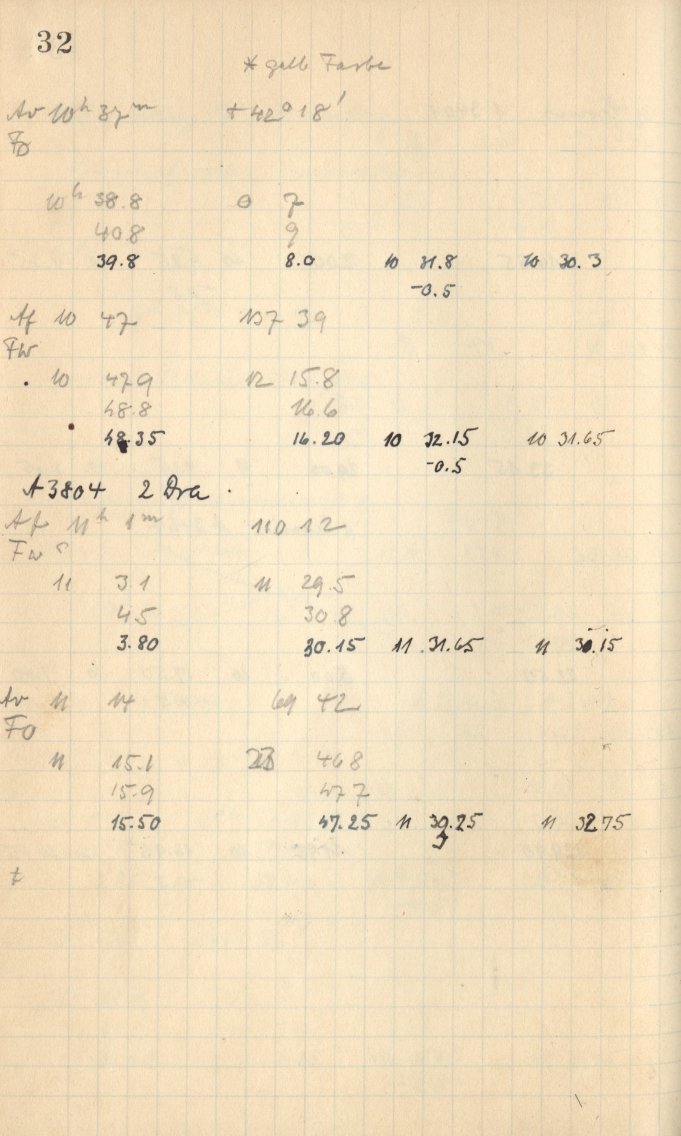 32
* gelb Farbe
Av 10h 37m + 42° 18'
FO
10h 38.8 0 7
40.8 9
39.8 8.0 10 31.8 10 30.3
-0.5
Af 10 47 137 39
FW
10 47.9 12 15.8
48.8 16.6
48.35 16.20 10 32.15 10 31.65
-0.5
A3804 2 Dra
Af 11h 1m 110 12
FW
11 3.1 11 29.5
4.5 30.8
3.80 30.15 11 31.65 11 30.15
Av 11 14 69 42
FO
11 15.1 23 46.8
15.9 47.7
15.50 47.25 11 39.25 11 32.75